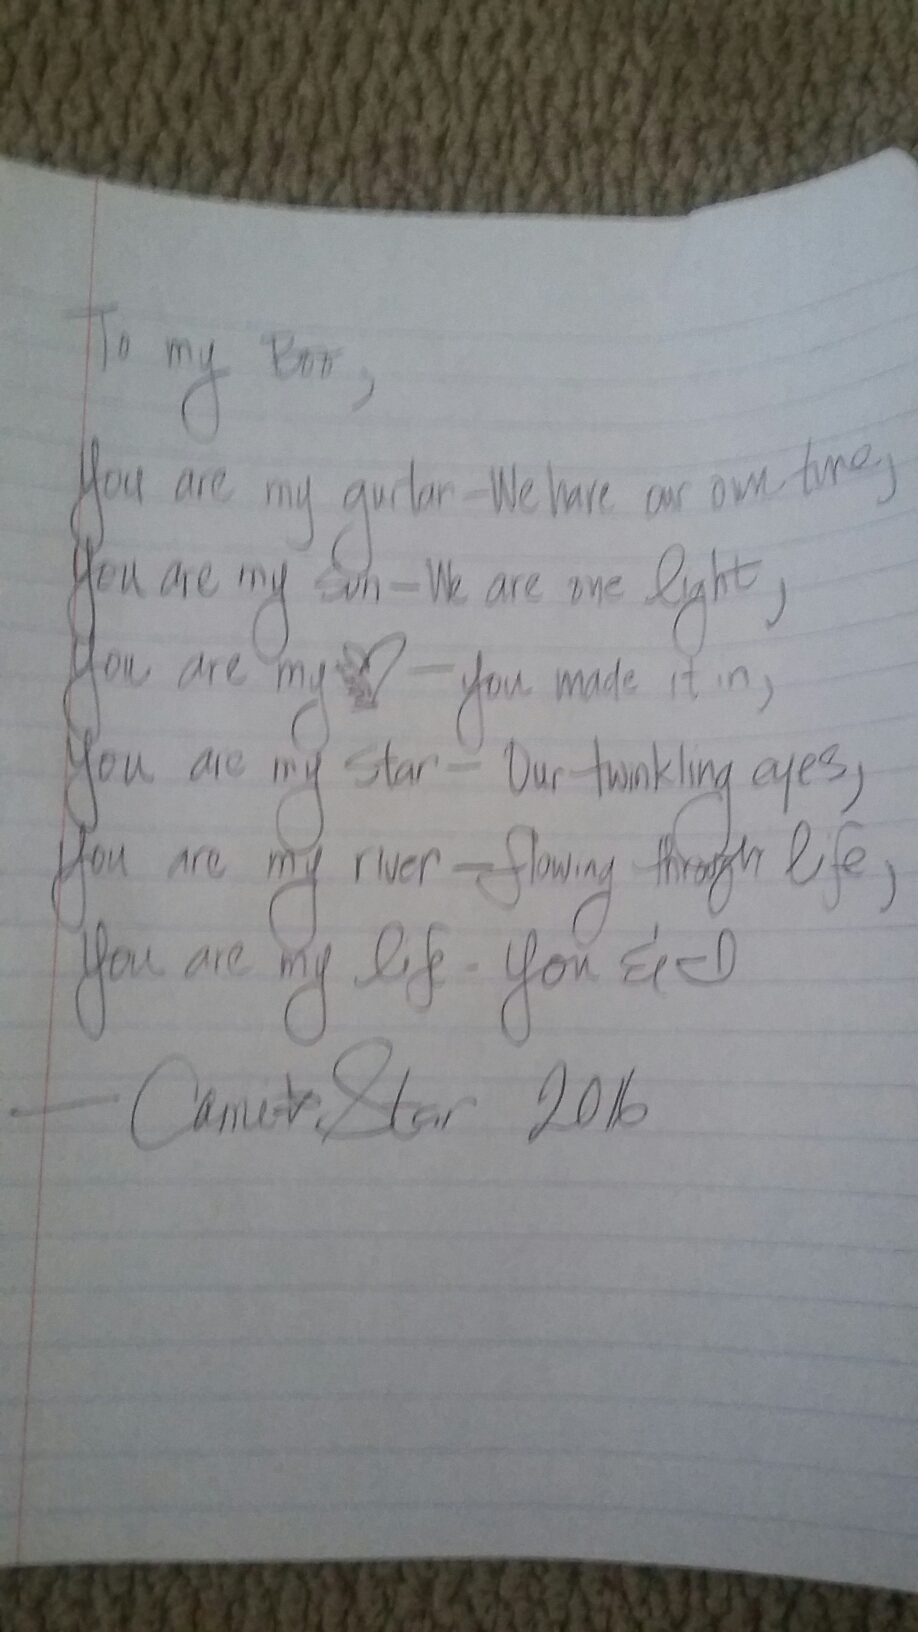 To my Boo,
You are my guitar - We have our own tune,
You are my sun - We are one light,
You are my - you made it in,
You are my star - Our twinkling eyes,
You are my river - flowing through life,
You are my life - You & I
- Star 2016